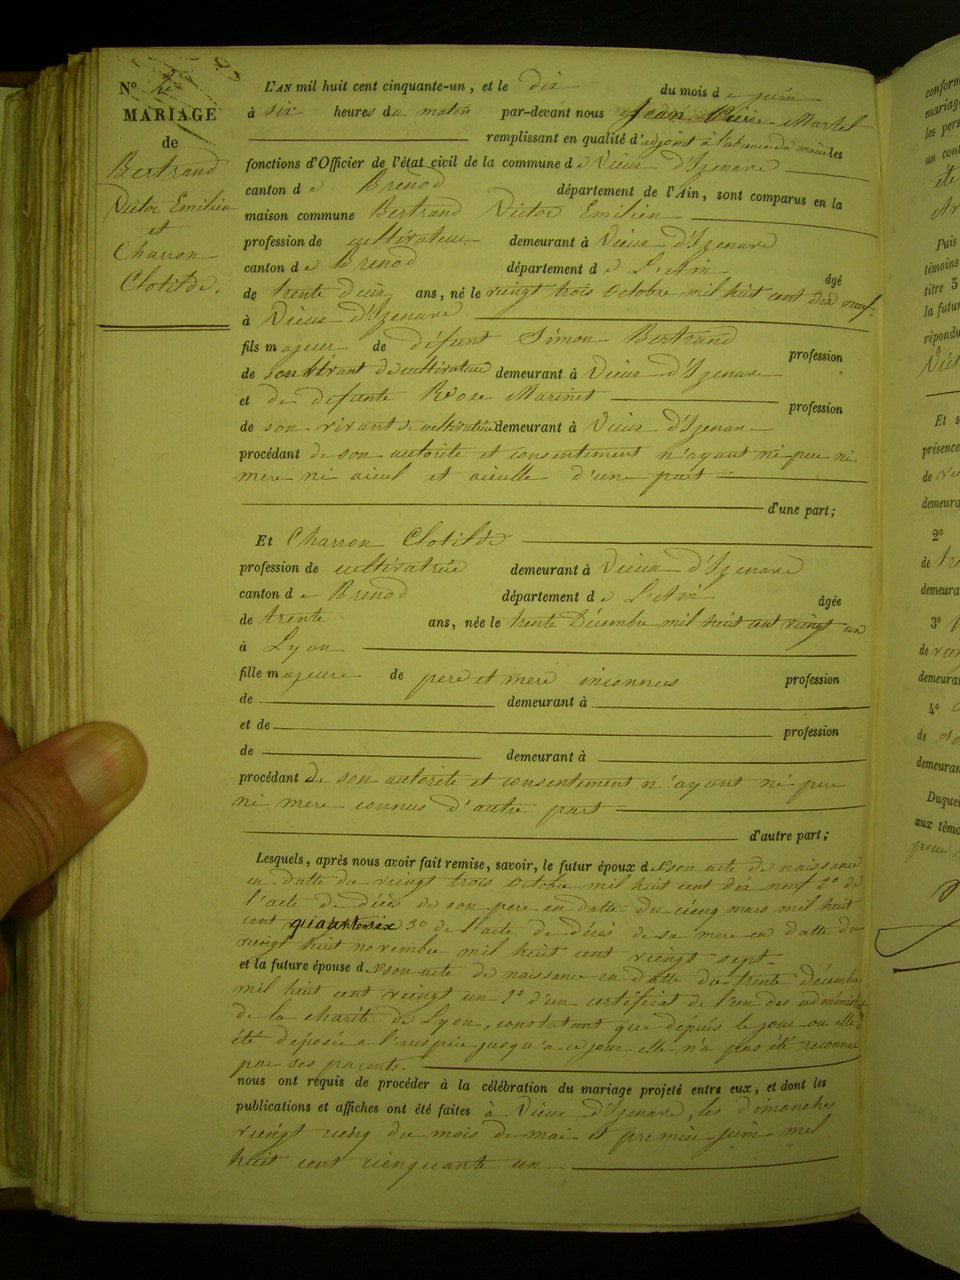 N° 2
MARIAGE
de
Bertrand
Victor Emilien
et
Charron
Clotilde.
L'AN mil huit cent cinquante-un, et le dix du mois de juin
à six heures du matin par-devant nous Jean Pierre Martel
remplissant en qualité d'adjoint à l'absence du maire les
fonctions d'Officier de l'état civil de la commune de Vieux d'Izenave
canton de Brenod département de l'Ain, sont comparus en la
maison commune Bertrand Victor Emilien
profession de cultivateur demeurant à Vieux d'Izenave
canton de Brenod département de L'Ain âgé
de trente deux ans, né le vingt trois Octobre mil huit cent dix neuf
à Vieux d'Izenave
fils majeur de défunt Simon Bertrand profession
de son vivant de cultivateur demeurant à Vieux d'Izenave
et de defunte Rose Marinet profession
de son vivant de cultivatrice demeurant à Vieux d'Izenave
procédant de son autorité et consentement n'ayant ni pere ni
mere ni aieul et aieulle d'une part
d'une part;
Et Charron Clotilde
profession de cultivatrice demeurant à Vieux d'Izenave
canton de Brenod département de L'Ain âgée
de trente ans, née le trente Décembre mil huit cent vingt un
à Lyon
fille majeure de pere et mere inconnus profession
de demeurant à
et de profession
de demeurant à
procédant de son autorité et consentement n'ayant ni pere
ni mere connus d'autre part
d'autre part;
Lesquels, après nous avoir fait remise, savoir, le futur époux d 1° son acte de naissance
en datte du vingt trois Octobre mil huit cent dix neuf 2° de
l'acte de décès de son pere en datte du cinq mars mil huit
cent quarante six 3° de l'acte de décès de sa mere en datte du
vingt huit novembre mil huit cent vingt sept.
et la future épouse d 1° son acte de naissance en datte du trente décembre
mil huit cent vingt un 2° d'un certificat de l'un des administ
de la charité de Lyon, constatant que depuis le jour ou elle a
été déposée a l'auspice jusqu'a ce jour elle n'a pas été reconnue
par ses parents.
nous ont requis de procéder à la célébration du mariage projeté entre eux, et dont les
publications et affiches ont été faites à Vieux d'Izenave, les dimanches
vingt cinq du mois de mai et premier juin mil
huit cent cinquante un